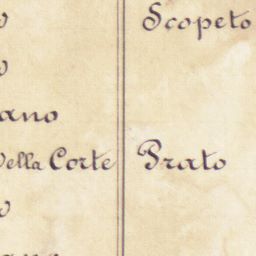 Scopeto
ano
Della Corte Prato